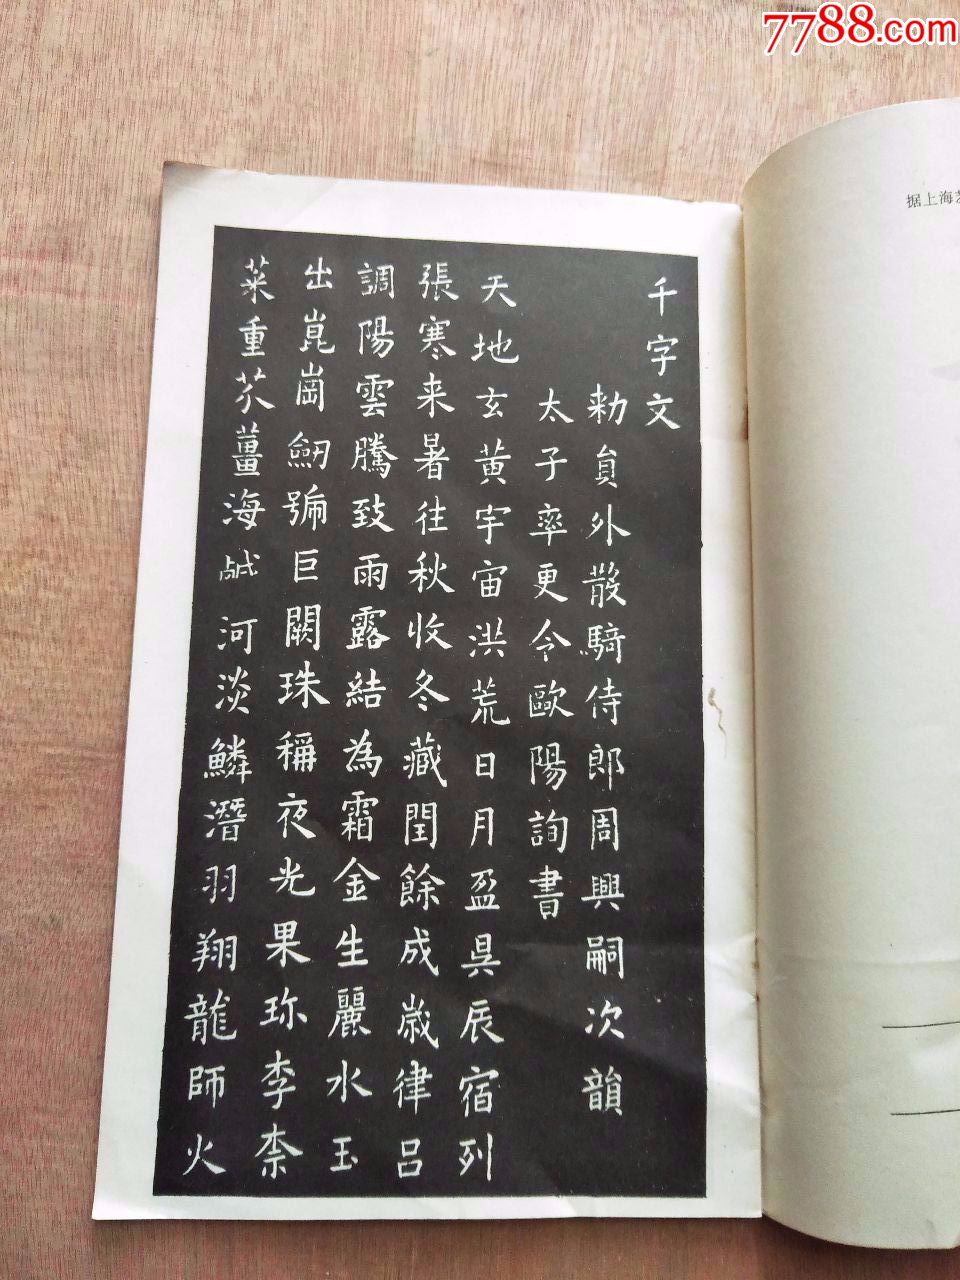 7788.com
据上海
千字文
勑負外散騎侍郎周興嗣次韻
太子率更令歐陽詢書
天地玄黃宇宙洪荒日月盈昃辰宿列
張寒来暑往秋收冬藏閏餘成歲律呂
調陽雲騰致雨露結為霜金生麗水玉
出崑崗劒號巨闕珠稱夜光果珎李柰
菜重芥薑海鹹河淡鱗潛羽翔龍師火